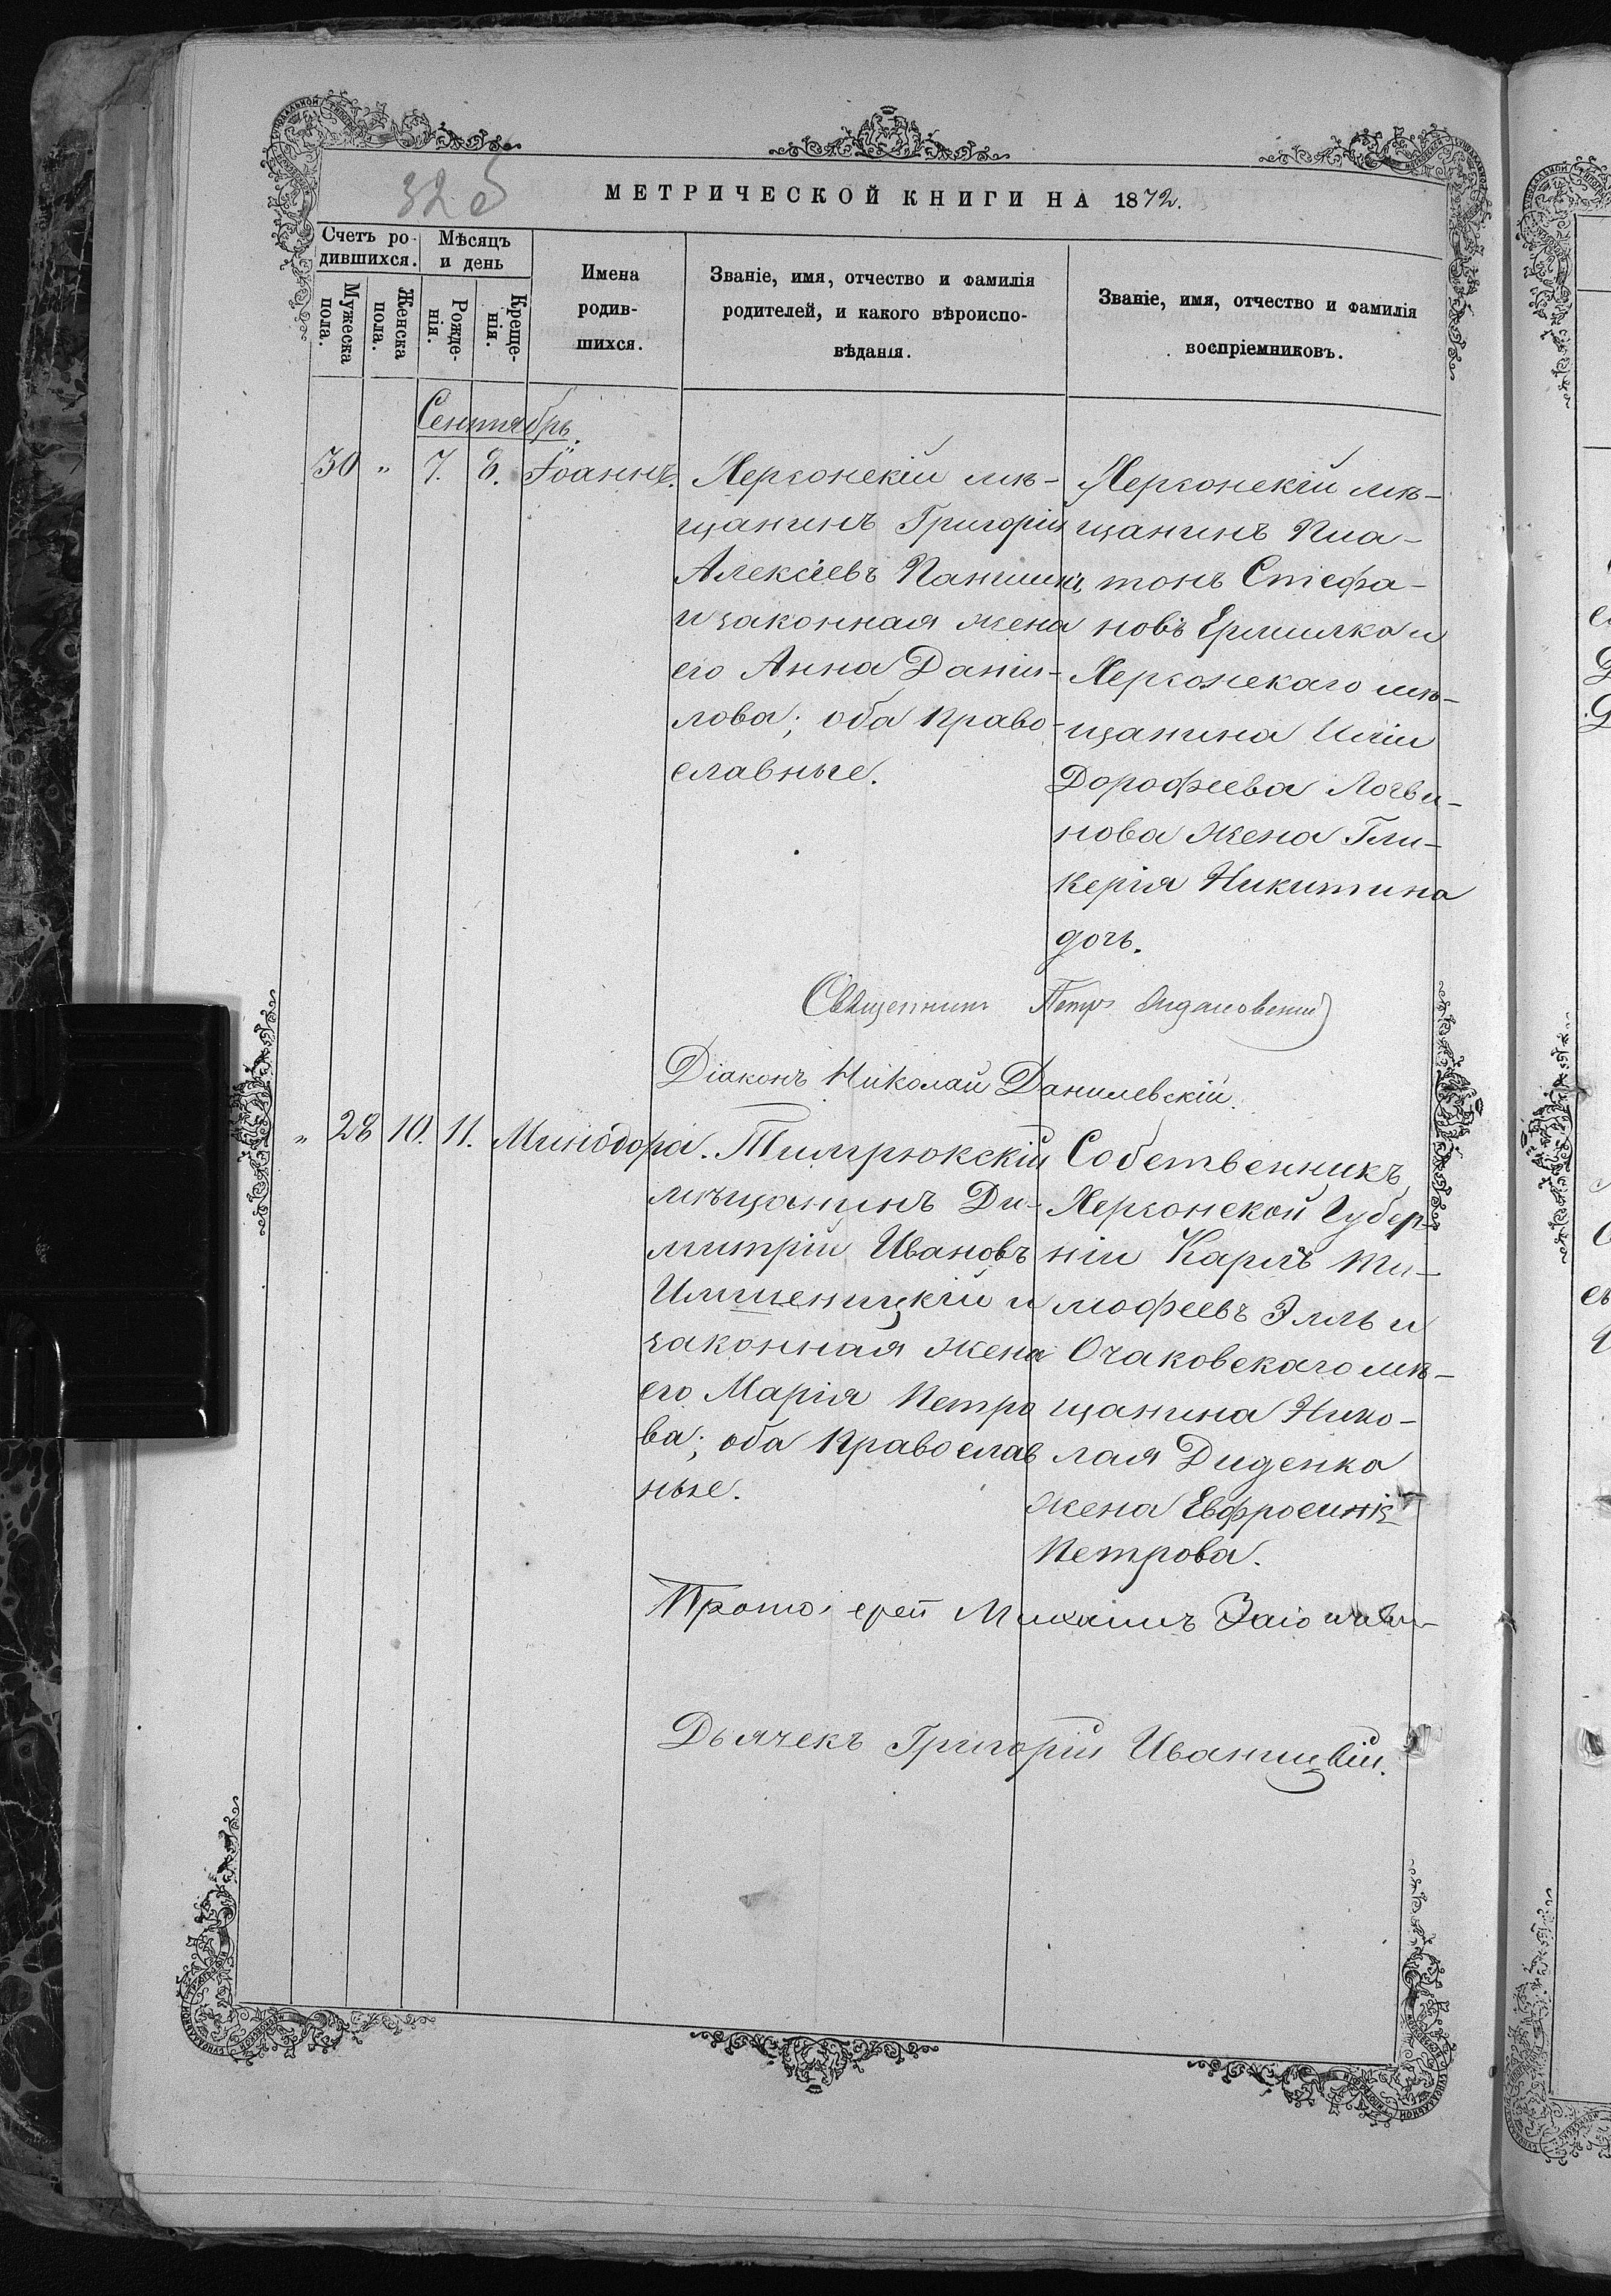 326
МЕТРИЧЕСКОЙ КНИГИ НА 1872.
Счетъ ро-
дившихся.
Мѣсяцъ
и день
Мужеска
пола.
Женска
пола.
Рожде-
нія.
Креще-
нія.
Имена
родив-
шихся.
Званіе, имя, отчество и фамилія
родителей, и какого вѣроиспо-
вѣданія.
Званіе, имя, отчество и фамилія
воспріемниковъ.
Сентябрь.
30 " 7. 8. Іоаннъ.
Херсонскій мѣ-
щанинъ Григорій
Алексѣевъ
и законная жена
его Анна Дани-
лова; оба право-
славные.
Херсонскій мѣ-
щанинъ Пла-
тонъ Стефа-
новъ Ермилко и
Херсонскаго мѣ-
щанина Иліи
Дорофеева Логви-
нова жена Гли-
керія Никитина
дочь.
Священникъ Петръ
Діаконъ Николай Данилевскій.
" 28 10. 11. Минодора.
Тимрюкскій
мѣщанинъ Ди-
митрій Ивановъ
Имшеницкій и
законная жена
его Марія Петро
ва; оба православ
ные.
Собственникъ
Херсонской Губер-
ніи Карлъ Ти-
мофеевъ Элль и
Очаковскаго мѣ-
щанина Нико-
лая Диденко
жена Евфросинія
Петрова.
Протоіерей Михаилъ
Дьячекъ Григорій Иваницкій.